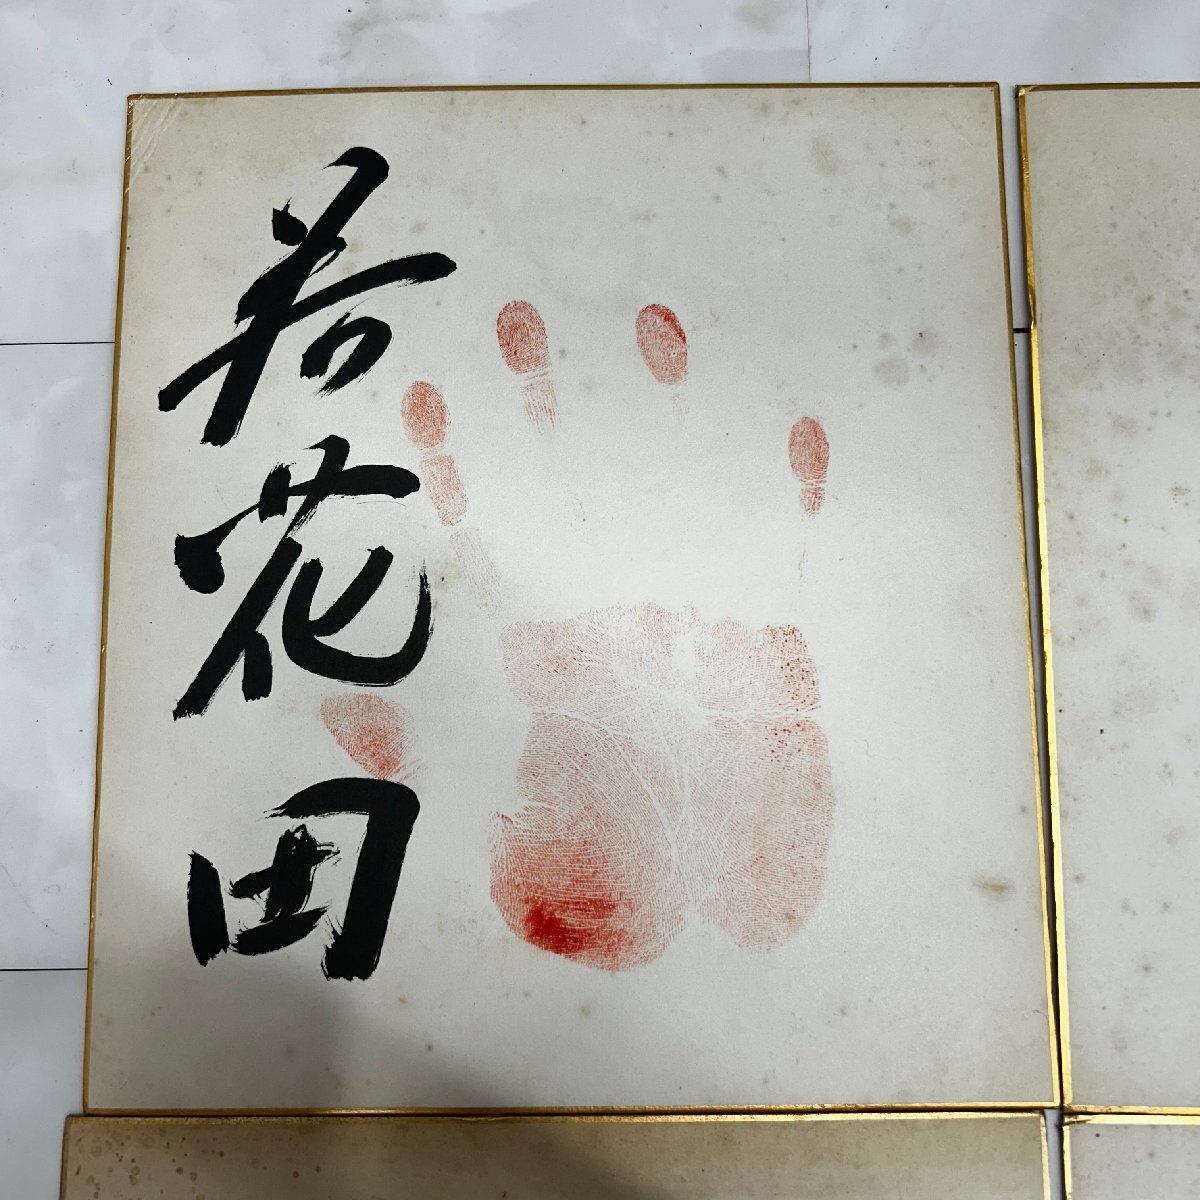 若花田